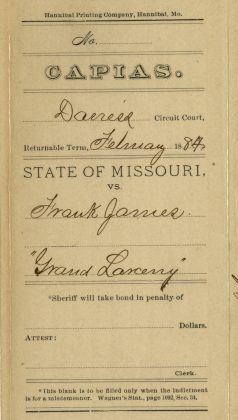 Hannibal Printing Company, Hannibal, Mo.
No.
CAPIAS.
Daviess Circuit Court,
Returnable Term, February 1884
STATE OF MISSOURI,
VS.
Frank James.
"Grand Larceny"
*Sheriff will take bond in penalty of
Dollars.
ATTEST:
Clerk.
*This blank is to be filled only when the indictment
is for a misdemeanor. Wagner's Stat., page 1092, Sec. 24.